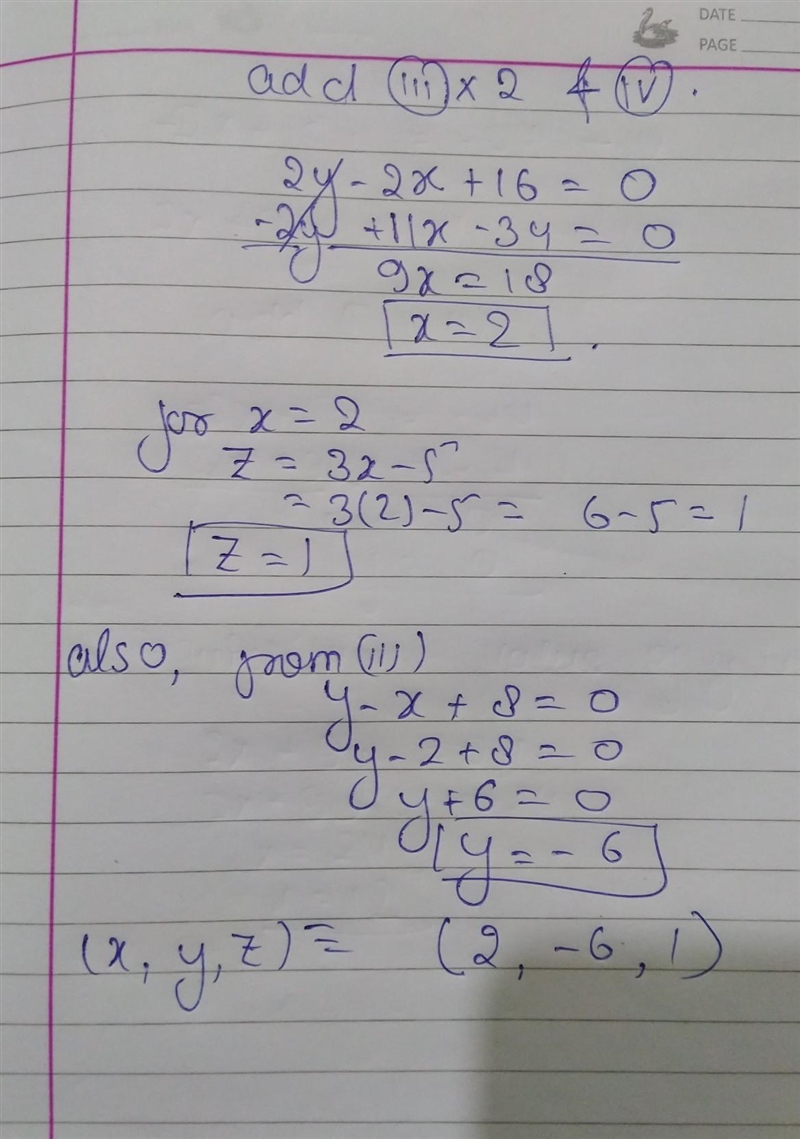 DATE
PAGE
add (iii) x 2 & (iv).
2y - 2x + 16 = 0
-2y + 11x - 34 = 0
9x = 18
x = 2.
for x = 2
z = 3x - 5
= 3(2) - 5 = 6 - 5 = 1
z = 1
also, from (iii)
y - x + 8 = 0
y - 2 + 8 = 0
y + 6 = 0
y = - 6
(x, y, z) = (2, -6, 1)